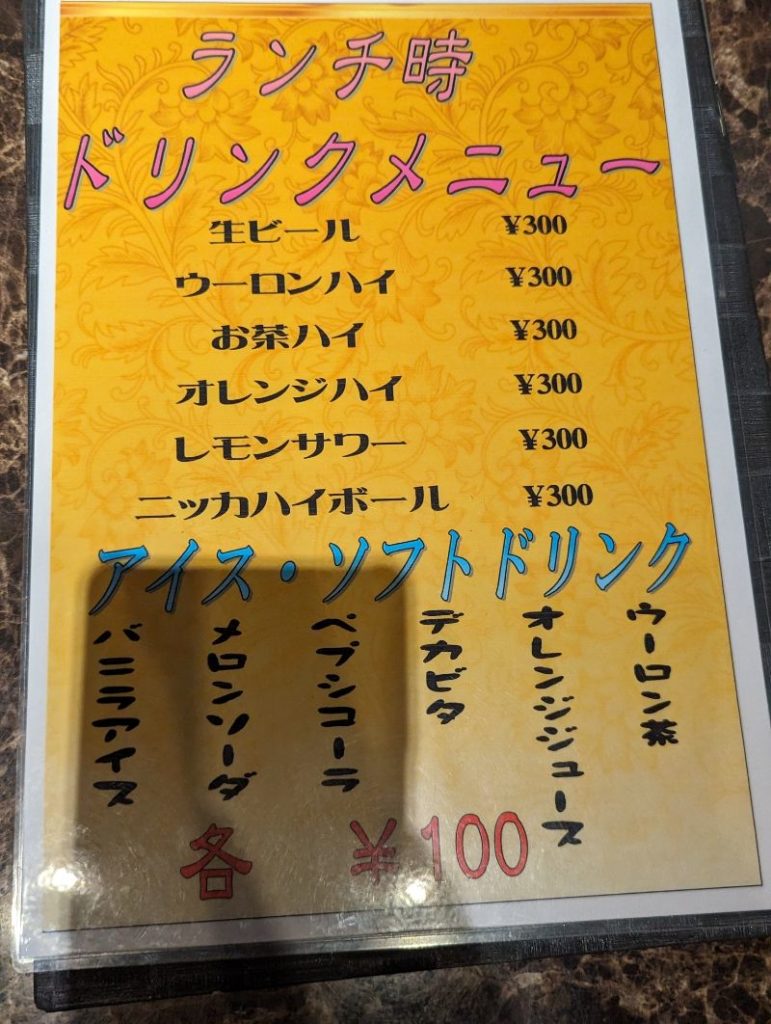 ランチ時
ドリンクメニュー
生ビール ¥300
ウーロンハイ ¥300
お茶ハイ ¥300
オレンジハイ ¥300
レモンサワー ¥300
ニッカハイボール ¥300
アイス・ソフトドリンク
ウーロン茶
オレンジジュース
デカビタ
ペプシコーラ
メロンソーダ
バニラアイス
各 ¥100